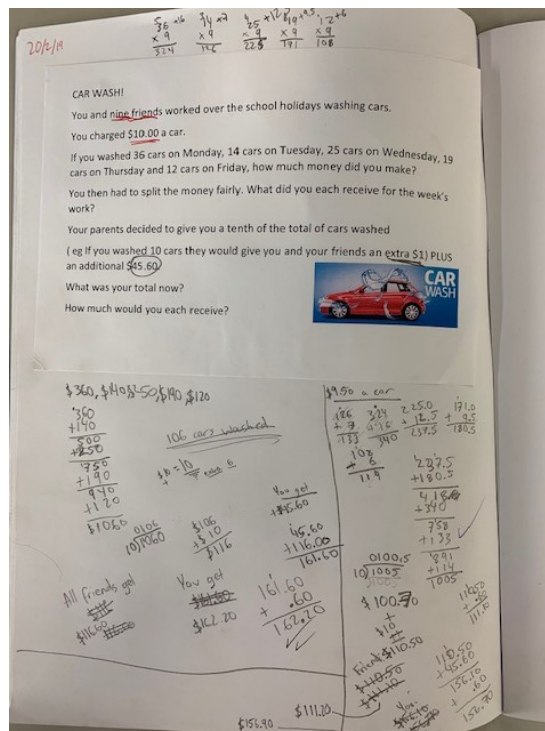 20/2/19
36 +16
x 9
324
14 +7
x 9
126
25 +12.5
x 9
225
19 +9.5
x 9
171
12 +6
x 9
108
CAR WASH!
You and nine friends worked over the school holidays washing cars.
You charged $10.00 a car.
If you washed 36 cars on Monday, 14 cars on Tuesday, 25 cars on Wednesday, 19
cars on Thursday and 12 cars on Friday, how much money did you make?
You then had to split the money fairly. What did you each receive for the week's
work?
Your parents decided to give you a tenth of the total of cars washed
( eg If you washed 10 cars they would give you and your friends an extra $1) PLUS
an additional $45.60
What was your total now?
How much would you each receive?
CAR
WASH
$360, $140, $250, $190, $120
360
+140
500
+250
750
+190
940
+120
$1060
106 cars washed
0106
10)1060
$106
+$10
$116
You get
+$45.60
45.60
+116.00
161.60
All friends get
$116.60
You get
$162.20
161.60
+ .60
162.20
$9.50 a car
126
+ 7
133
324
+16
340
225.0
+ 12.5
237.5
171.0
+ 9.5
180.5
108
+ 6
114
237.5
+180.5
418
+340
758
+133
891
+114
1005
0100.5
10)1005
+
$10
Friends $110.50
110.50
+ .60
111.10
110.50
+45.60
156.10
+ .60
156.70
You:
$111.20
$156.90